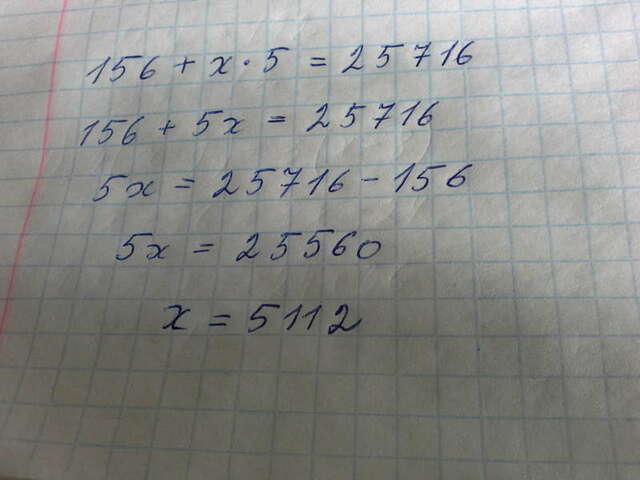 156 + x · 5 = 25716
156 + 5x = 25716
5x = 25716 - 156
5x = 25560
x = 5112